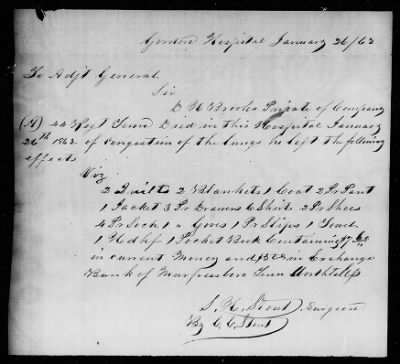 Gordon Hospital January 26/62
To Adjt General
Sir
D H Brooks Private of Company
(A) 44 Regt Tenn Died in this Hospital January
26th 1862 of congestion of the lungs he left the following
effects
Viz
2 Quilts 2 Blankets 1 Coat 2 Pr Pant
1 Jacket 3 Pr Drawers 6 Shirts 2 Pr Shoes
4 Pr Sock 1 " Gloves 1 Pr Slips 1 Towel
1 Hdkf 1 Pocket Book Containing
in current Money and in Exchange
Bank of Murfreesboro Tenn Worthless
S. H. Stout, Surgeon
By C. C. Stout